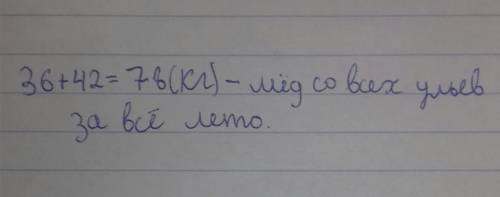 36+42=78(кг) - мёд со всех ульев
за всё лето.